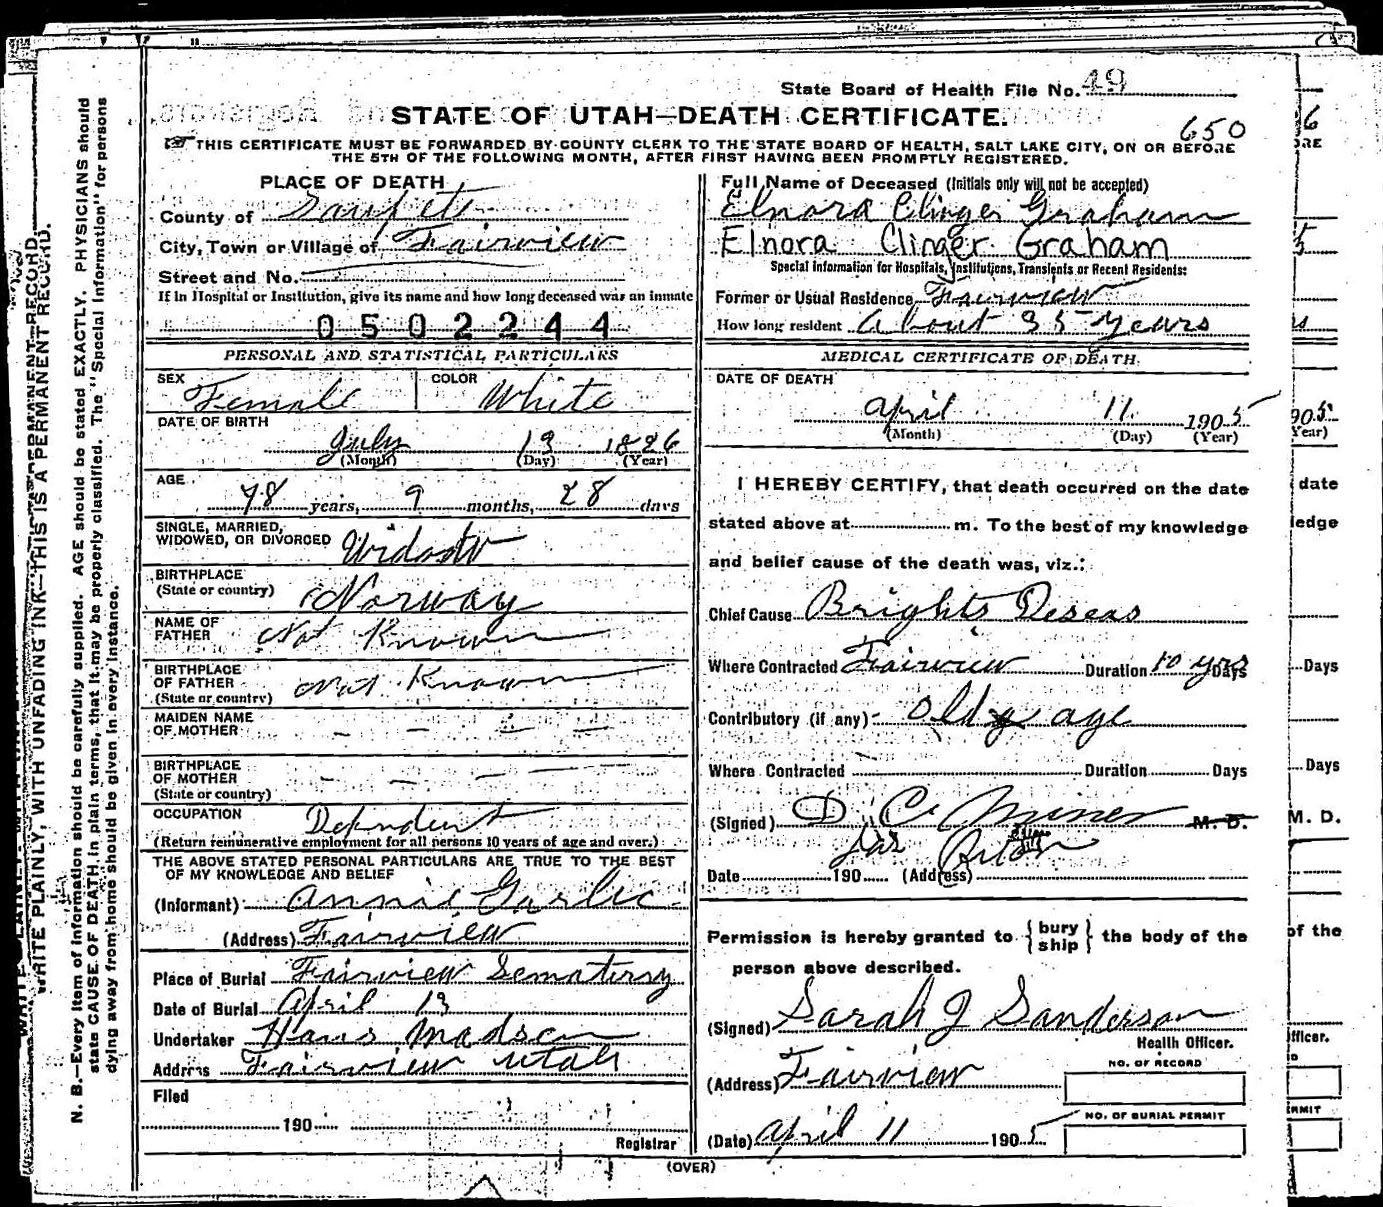 State Board of Health File No. 49
STATE OF UTAH—DEATH CERTIFICATE.
650
THIS CERTIFICATE MUST BE FORWARDED BY COUNTY CLERK TO THE STATE BOARD OF HEALTH, SALT LAKE CITY, ON OR BEFORE
THE 5TH OF THE FOLLOWING MONTH, AFTER FIRST HAVING BEEN PROMPTLY REGISTERED.
PLACE OF DEATH
County of Sanpete
City, Town or Village of Fairview
Street and No.
If in Hospital or Institution, give its name and how long deceased was an inmate
0502244
PERSONAL AND STATISTICAL PARTICULARS
SEX Female COLOR White
DATE OF BIRTH
July 13 1826
(Month) (Day) (Year)
AGE
78 years, 9 months, 28 days
SINGLE, MARRIED,
WIDOWED, OR DIVORCED Widow
BIRTHPLACE
(State or country) Norway
NAME OF
FATHER Not Known
BIRTHPLACE
OF FATHER Not Known
(State or country)
MAIDEN NAME
OF MOTHER — — — —
BIRTHPLACE
OF MOTHER — — — —
(State or country)
OCCUPATION Dependent
(Return remunerative employment for all persons 10 years of age and over.)
THE ABOVE STATED PERSONAL PARTICULARS ARE TRUE TO THE BEST
OF MY KNOWLEDGE AND BELIEF
(Informant) Annie Garlic
(Address) Fairview
Place of Burial Fairview Sematersy
Date of Burial April 13
Undertaker Hans Madsen
Address Fairview Utah
Filed
190
Registrar
Full Name of Deceased (Initials only will not be accepted)
Elnora Clinger Graham
Elnora Clinger Graham
Special Information for Hospitals, Institutions, Transients or Recent Residents:
Former or Usual Residence Fairview
How long resident About 35 years
MEDICAL CERTIFICATE OF DEATH.
DATE OF DEATH
April 11 1905
(Month) (Day) (Year)
I HEREBY CERTIFY, that death occurred on the date
stated above at m. To the best of my knowledge
and belief cause of the death was, viz.:
Chief Cause Brights Deseas
Where Contracted Fairview Duration 10 yrs Days
Contributory (if any) old age
Where Contracted Duration Days
(Signed) D. C. Miner M. D.
Date 190 (Address)
Permission is hereby granted to {bury
ship} the body of the
person above described.
(Signed) Sarah J Sanderson
Health Officer.
(Address) Fairview
NO. OF RECORD
NO. OF BURIAL PERMIT
(Date) April 11 1905
(OVER)
WRITE PLAINLY, WITH UNFADING INK—THIS IS A PERMANENT RECORD.
N. B.—Every item of information should be carefully supplied. AGE should be stated EXACTLY. PHYSICIANS should
state CAUSE OF DEATH in plain terms, that it may be properly classified. The "Special Information" for persons
dying away from home should be given in every instance.
date
ledge
Days
Days
M. D.
of the